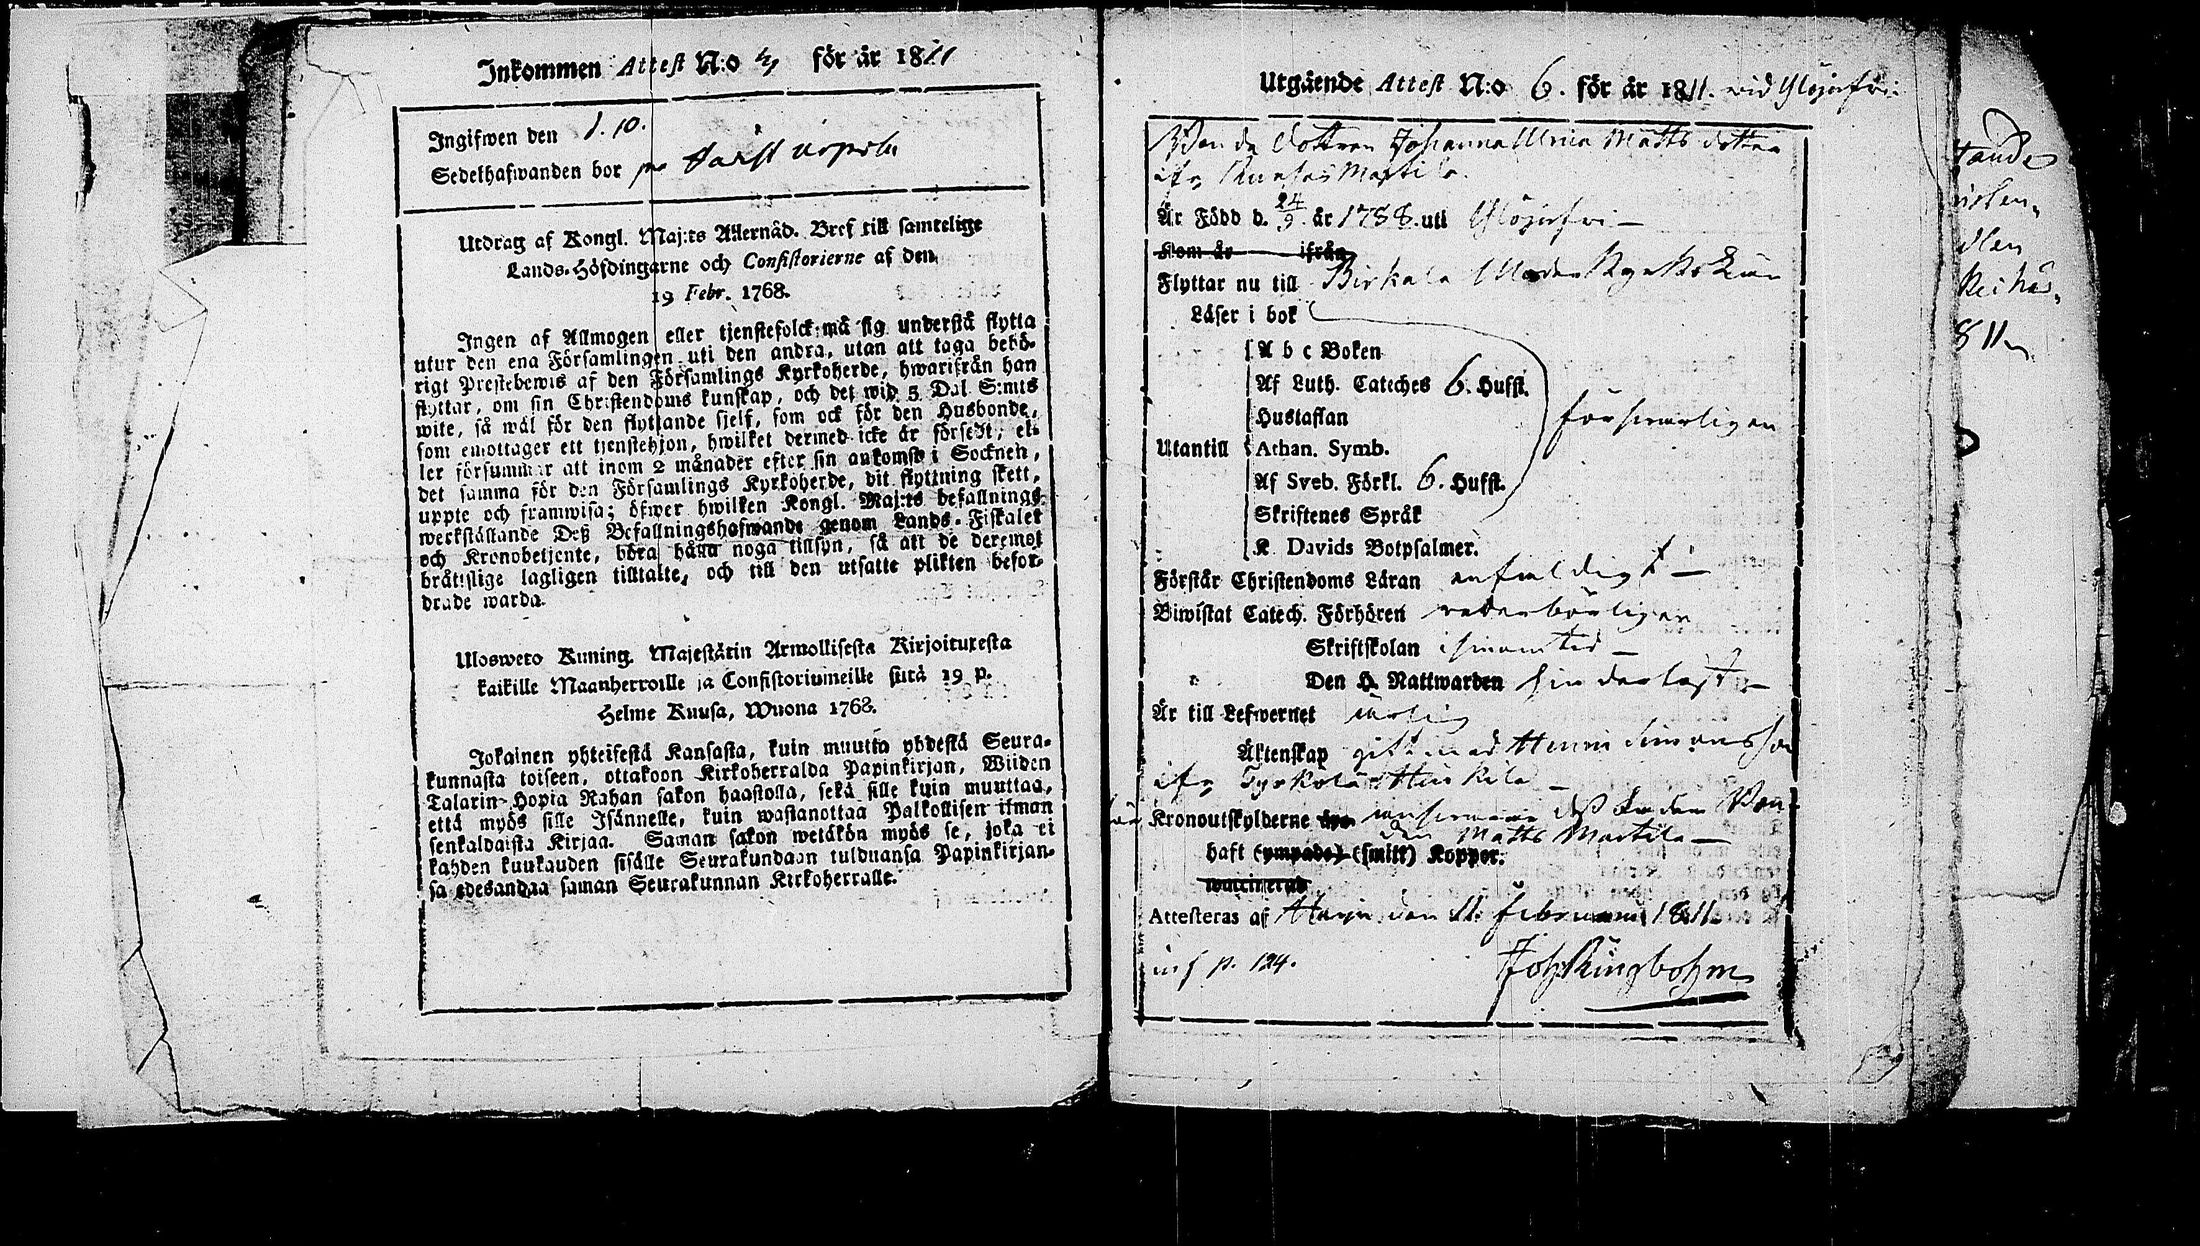 Inkommen Attest N:o 4 för år 1811
Ingifwen den 1. 10.
Sedelhafwanden bor på
Utdrag af Kongl. Maj:ts Allernåd. Bref till samtelige
Lands-Höfdingarne och Consistorierne af den
19 Febr. 1768.
Ingen af Allmogen eller tjenstefolck må sig understå flytta
utur den ena Församlingen uti den andra, utan att taga behö-
rigt Prestebewis af den Församlings Kyrkoherde, hwarifrån han
flyttar, om sin Christendoms kunskap, och det wid 5 Dal. S:mts
wite, så wäl för den flyttande sjelf, som ock för den Husbonde,
som emottager ett tjenstehjon, hwilket dermed icke är försedt, el-
ler försummar att inom 2 månader efter sin ankomst i Socknen,
det samma för den Församlings Kyrkoherde, dit flyttning skett,
uppte och framwisa; öfwer hwilken Kongl. Maj:ts befallnings
werkställande Deß Befallningshafwande genom Lands-Fiskaler
och Kronobetjente, böra hålla noga tillsyn, så att de deremot
bråtslige lagligen tilltalte, och till den utsatte plikten befor-
drade warda.
Ulosweto Kuning. Majestätin Armollisesta Kirjoituxesta
kaikille Maanherroille ja Consistoriumeille siitä 19 p.
Helme Kuusa, Wuona 1768.
Jokainen yhteisestä Kansasta, kuin muutta yhdestä Seura-
kunnasta toiseen, ottakoon Kirkoherralda Papinkirjan, Wiiden
Talarin Hopia Rahan sakon haastolla, sekä sille kuin muuttaa,
että myös sille Isännelle, kuin wastanottaa Palkollisen ilman
senkaldaista Kirjaa. Saman sakon wetäkön myös se, joka ei
kahden kuukauden sisälle Seurakundaan tulduansa Papinkirjan-
sa edesandaa saman Seurakunnan Kirkoherralle.
Utgående Attest N:o 6. för år 1811. wid Ylöjärfwi
Bonde dottren Johanna Ulrica Matts dotter
ifr. Martila.
Är Född d. 24/9. år 1788. uti Ylöjärfwi
Kom år ifrån
Flyttar nu till Birkala Moder Kyrko
Läser i bok
A b c Boken
Af Luth. Cateches 6. Hufst.
Hustaflan försvarligen
Utantill Athan. Symb.
Af Sveb. Förkl. 6. Hufst.
Skriftenes Språk
K. Davids Botpsalmer.
Förstår Christendoms Läran enfaldigt
Biwistat Catech. Förhören wederbörligen
Skriftskolan
Den H. Nattwarden
Är till Lefwernet ärlig
Äktenskap gift med Simonsson
ifr. Tyrkölä
Kronoutskylderne
Matts Martila
haft (ympade) (smitt) Koppor.
waccinerad
Attesteras af Harju den 11. februarii 1811.
p. 124.
Joh. Ringbohm
8 11